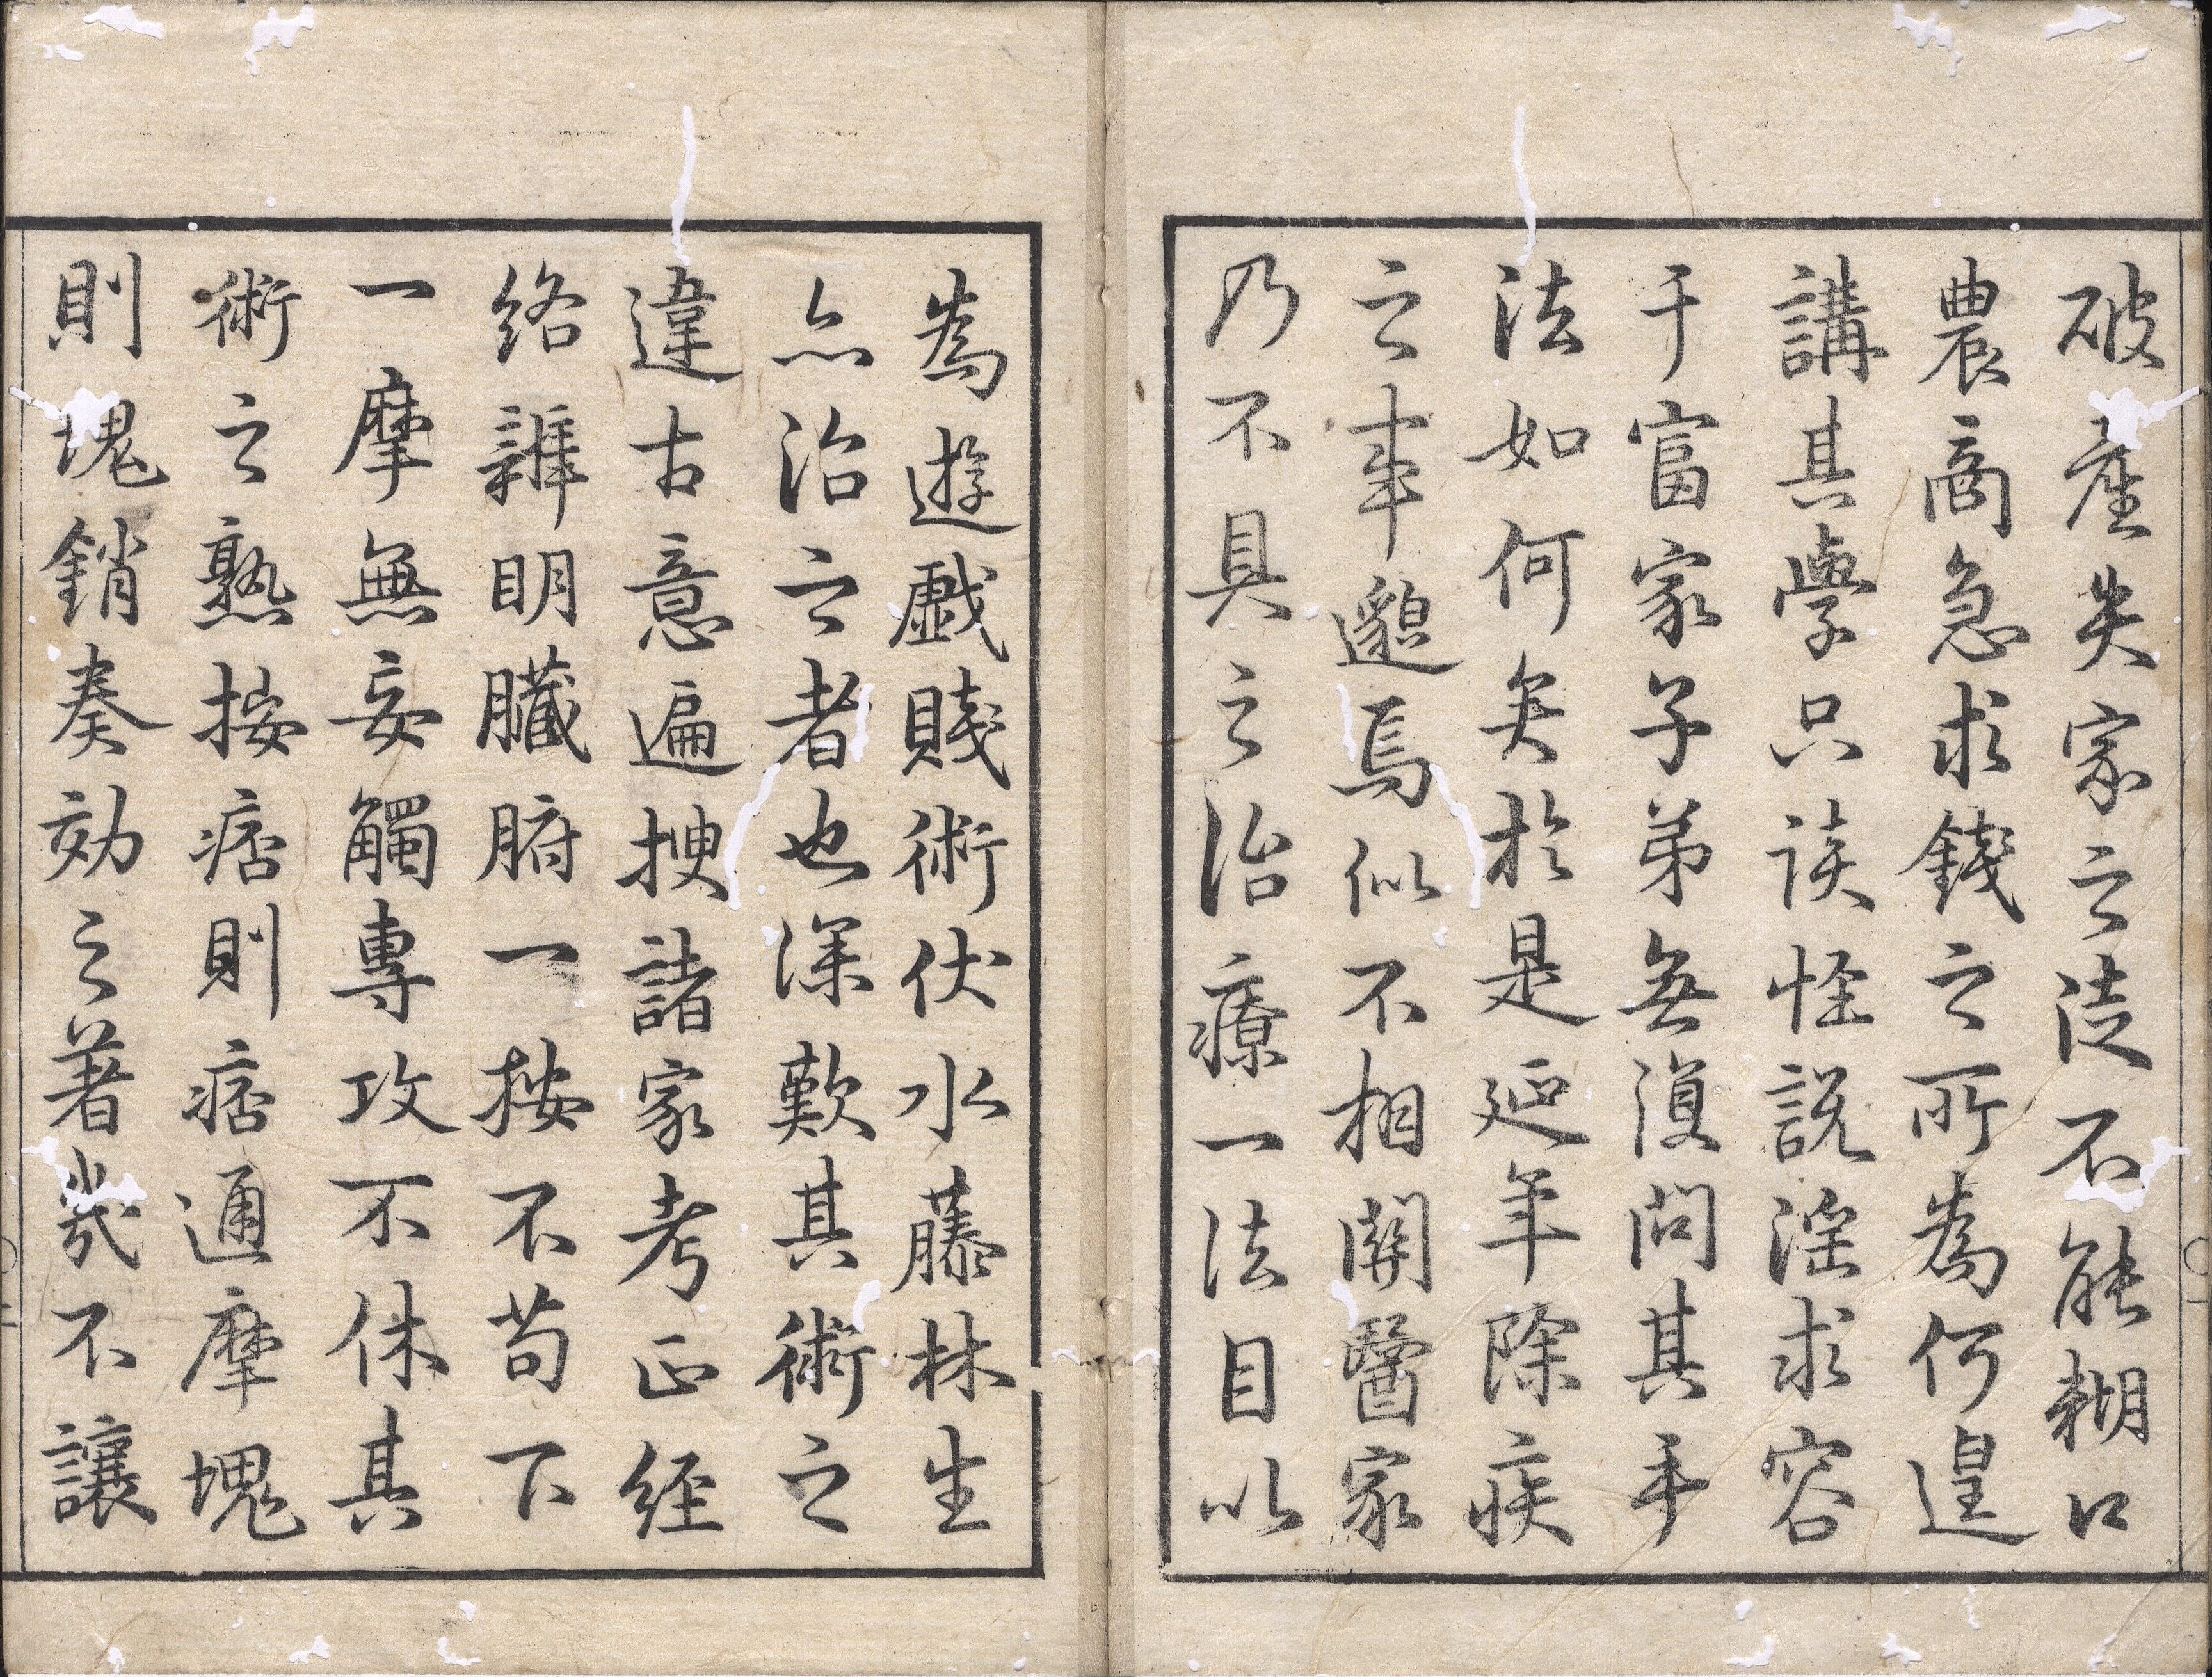 破産失家之徒不能糊口
農商急求錢之所為何遑
講其學只談怪説淫求容
于富家子弟無復問其手
法如何矣於是延年除疾
之事邈焉似不相關醫家
乃不具之治療一法目以
為遊戯賤術伏水藤林生
亦治之者也深歎其術之
違古意遍捜諸家考正経
絡辨明臓腑一按不苟下
一摩無妄觸専攻不休其
術之熟按痞則痞通摩塊
則塊銷奏効之著幾不讓